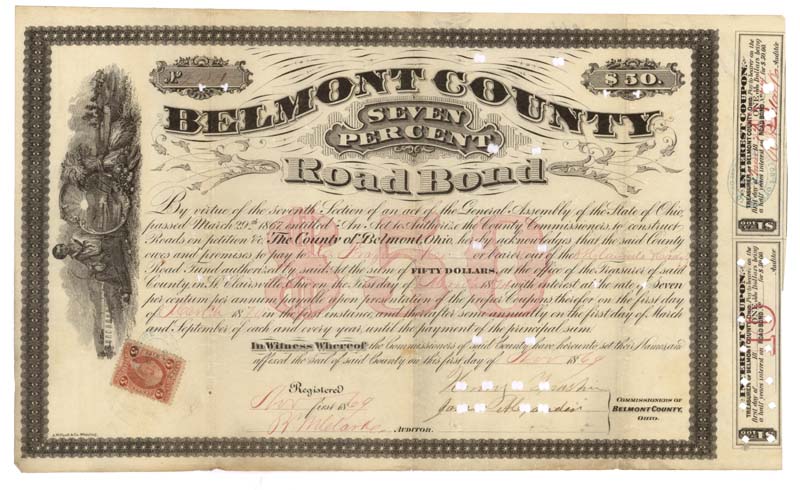 $50.
BELMONT COUNTY
SEVEN
PERCENT
Road Bond
By virtue of the seventh Section of an act of the General Assembly of the State of Ohio,
passed March 29th 1867 entitled "An Act to Authorize the County Commissioners to construct
Roads on petition &c. The County of Belmont, Ohio, hereby acknowledges that the said County
owes and promises to pay to or bearer out of the
Road Fund authorized by said Act the sum of FIFTY DOLLARS, at the office of the Treasurer of said
County, in St. Clairsville, Ohio on the First day of with interest at the rate of seven
per centum per annum, payable upon presentation of the proper Coupons therefor on the first day
of March 18 in the first instance, and thereafter semi annually on the first day of March
and September of each and every year, until the payment of the principal sum.
In Witness Whereof the Commissioners of said County have hereunto set their Names and
affixed the seal of said County on this first day of Nov 1869
Registered
Nov first 1869
AUDITOR.
COMMISSIONERS OF
BELMONT COUNTY,
OHIO.
$50
INTEREST COUPON.
TREASURER OF BELMONT COUNTY, OHIO, Pay to bearer on the
first day of ONE Dollars being
a half years interest on ROAD BOND, for $50.00
Auditor
$1
INTEREST COUPON.
TREASURER OF BELMONT COUNTY, OHIO, Pay to bearer on the
first day of ONE Dollars being
a half years interest on ROAD BOND, for $50.00
Auditor
$1